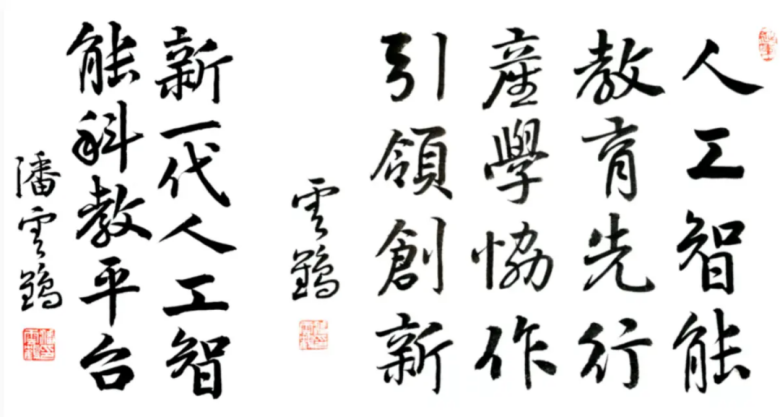 人工智能
教育先行
產學協作
引領創新
雲鶴
新一代人工智
能科教平台
潘雲鶴